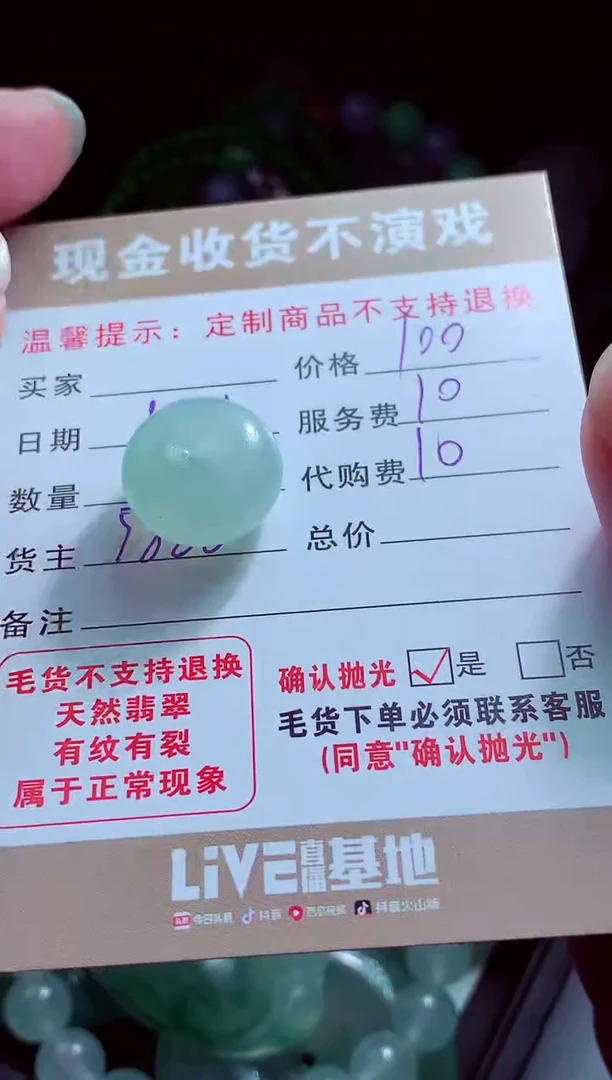 现金收货不演戏
温馨提示：定制商品不支持退换
买家 价格 100
日期 服务费 10
数量 代购费 10
货主 总价
备注
毛货不支持退换
天然翡翠
有纹有裂
属于正常现象
确认抛光 是 否
毛货下单必须联系客服
(同意"确认抛光")
LiVE直播基地
今日头条 抖音 西瓜视频 抖音火山版